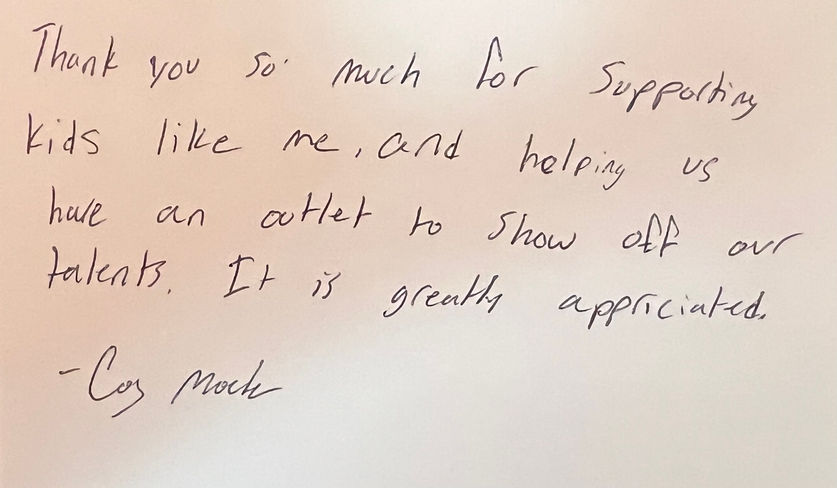 Thank you so much for supporting
kids like me, and helping us
have an outlet to show off our
talents. It is greatly appriciated.
- Mock